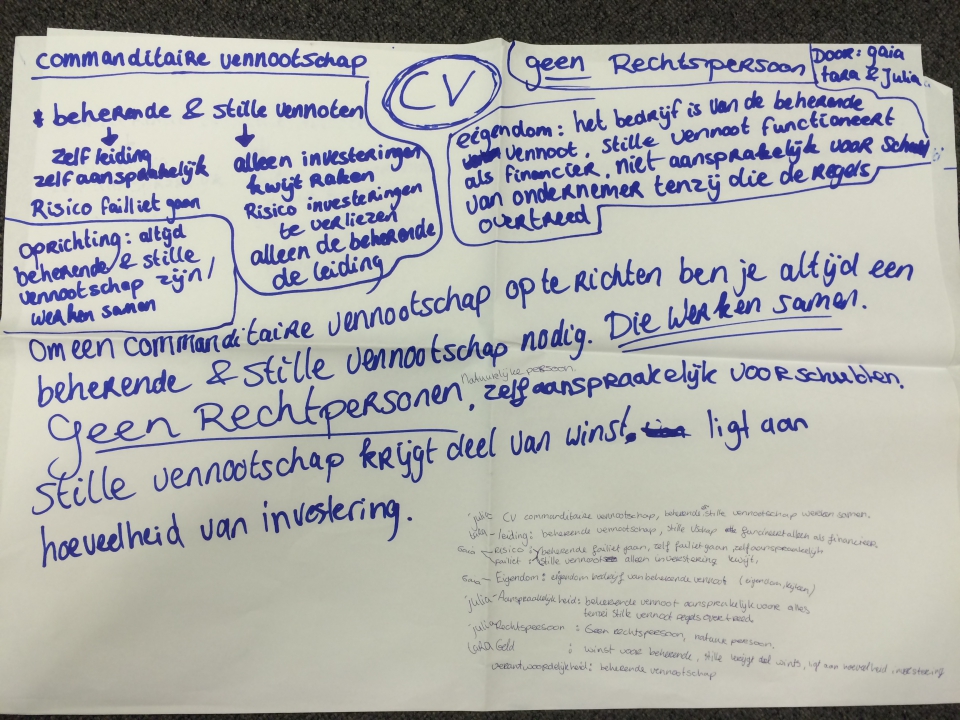 commanditaire vennootschap
CV
geen Rechtspersoon
Door: gaia
tara & Julia
* beherende & stille vennoten
zelf leiding
zelf aansprakelijk
Risico failliet gaan
alleen investeringen
kwijt raken
Risico investeringen
te verliezen
alleen de beherende
de leiding
eigendom: het bedrijf is van de beherende
vennoot. stille vennoot functioneert
als financier, niet aansprakelijk voor schuld
van ondernemer tenzij die de regels
overtreed
oprichting: altijd
beherende & stille
vennootschap zijn/
werken samen
Om een commanditaire vennootschap op te richten ben je altijd een
beherende & stille vennootschap nodig. Die werken samen.
Natuurlijke persoon.
Geen Rechtpersonen, zelf aanspraakelijk voor schulden.
Stille vennootschap krijgt deel van winst. ligt aan
hoeveelheid van investering.
julia - CV commanditaire vennootschap, beherende stille vennootschap werken samen.
- leiding: beherende vennootschap, stille Vschap alleen als financieer
Gaia - Risico : beherende failiet gaan, zelf failiet gaan, zelf aansprakelijk
failiet : stille vennoot alleen investering kwijt.
Gaia - Eigendom: eigendom bedrijf van beherende vennoot
julia - Aansprakelijkheid: beherende vennoot aansprakelijk voor alles
tenzei stille vennoot regels overtreed.
julia - Rechtspersoon : Geen rechtspersoon, natuur persoon.
tara Geld : winst voor beherende, stille krijgt deel wints, ligt aan hoeveelheid investering
verantwoordelijkheid: beherende vennootschap